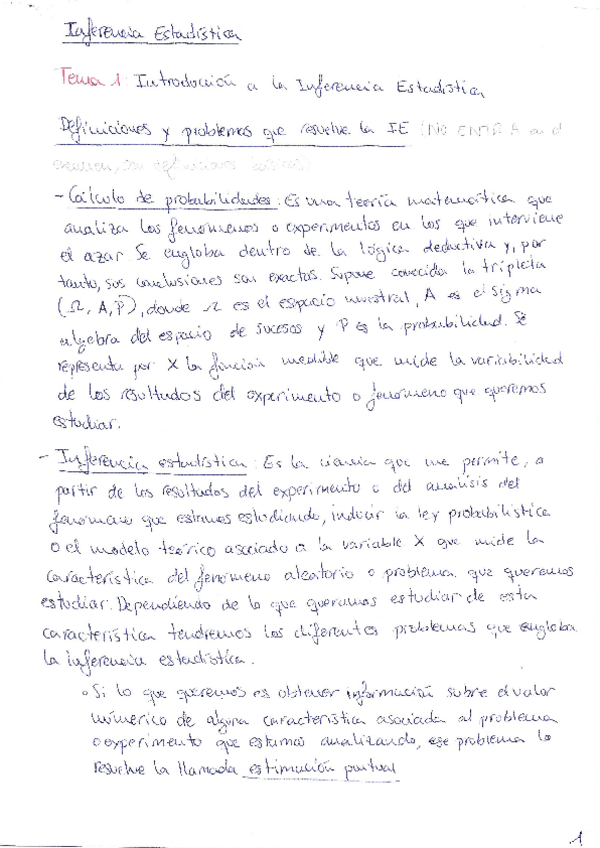 Inferencia Estadística
Tema 1: Introducción a la Inferencia Estadística
Definiciones y problemas que resuelve la IE (NO ENTRA en el
examen, son definiciones
- Cálculo de probabilidades: Es una teoría matemática que
analiza los fenómenos o experimentos en los que interviene
el azar. Se engloba dentro de la lógica deductiva y, por
tanto, sus conclusiones son exactas. Supone conocida la tripleta
(Ω, A, P), donde Ω es el espacio muestral, A es el sigma
algebra del espacio de sucesos y P es la probabilidad. Se
representa por X la función medible que mide la variabilidad
de los resultados del experimento o fenómeno que queremos
estudiar.
- Inferencia estadística: Es la ciencia que me permite, a
partir de los resultados del experimento o del análisis del
fenómeno que estamos estudiando, inducir la ley probabilística
o el modelo teórico asociado a la variable X que mide la
característica del fenómeno aleatorio o problema que queremos
estudiar. Dependiendo de lo que queramos estudiar de esta
característica tendremos los diferentes problemas que engloba
la inferencia estadística.
◦ Si lo que queremos es obtener información sobre el valor
númerico de alguna característica asociada al problema
o experimento que estamos analizando, ese problema lo
resuelve la llamada estimación puntual
1